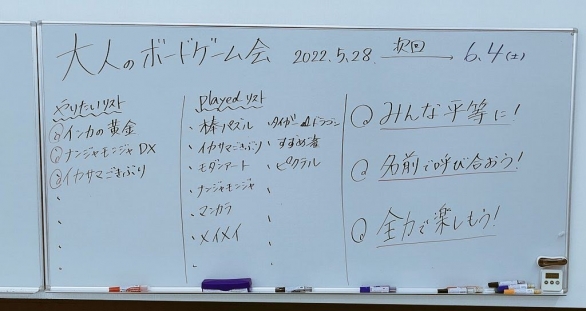 大人のボードゲーム会 2022.5.28. 次回 → 6.4(土)
やりたいリスト
①インカの黄金
②ナンジャモンジャDX
③イカサマごきぶり
Played リスト
・棒パズル
・イカサマごきぶり
・モダンアート
・ナンジャモンジャ
・マンカラ
・メイメイ
・タイガー&ドラゴン
・すずめ雀
・ピクテル
みんな平等に!
名前で呼び合おう!
全力で楽しもう!